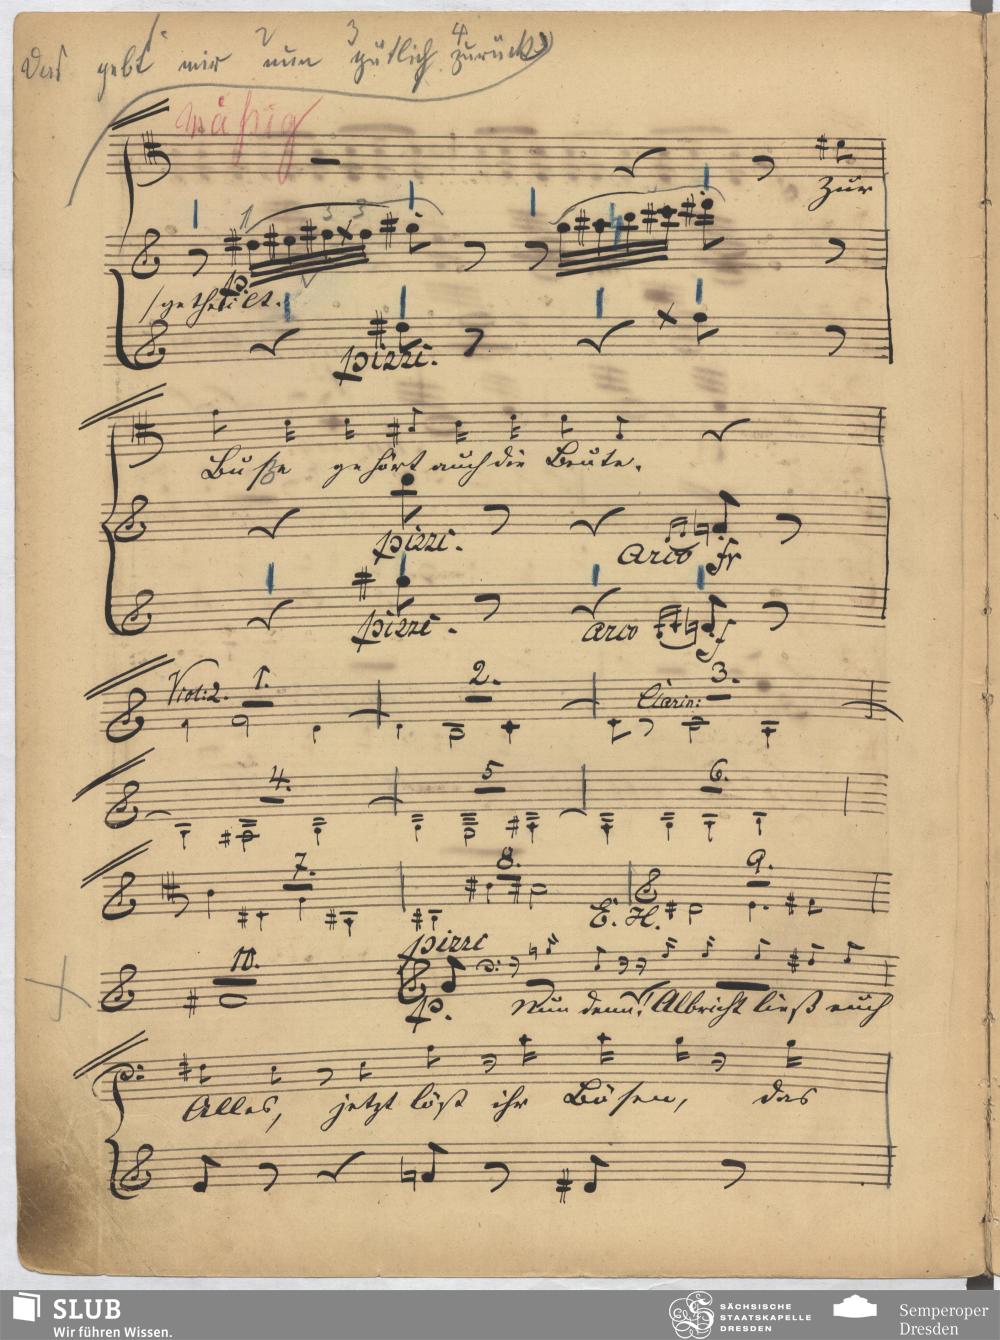 Das gebt mir nun gütlich zurück
1. 2 3 4
mäßig
zur
1 3 3 4
getheilt.
p.
pizzi.
Buße gehört auch die Beute.
pizzi.
Arco fr
pizzi.
Arco f
Viol: 2. 1. 2. 3.
Clarin:
4. 5 6.
7. 8. 9.
E. H.
10. pizzi
p. Nun denn! Albricht ließ euch
Alles, jetzt löst ihr Bösen, das
SLUB
Wir führen Wissen.
SÄCHSISCHE
STAATSKAPELLE
DRESDEN
Semperoper
Dresden